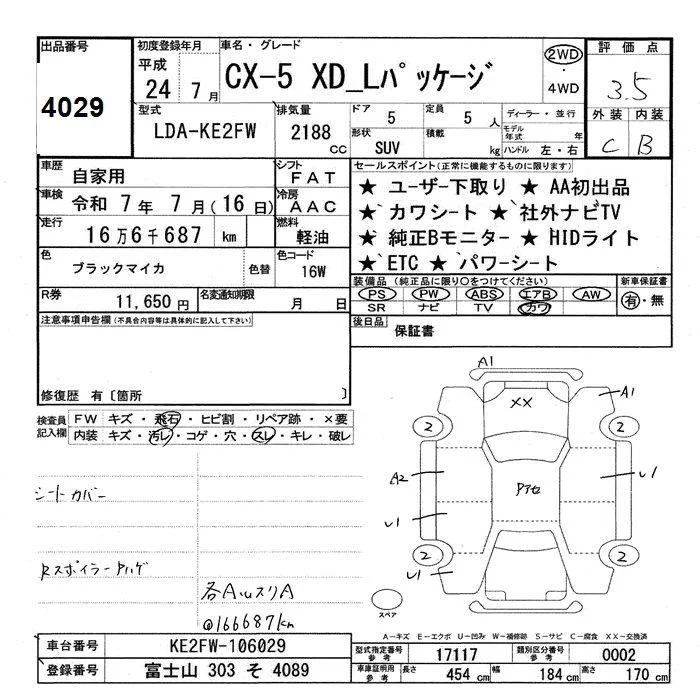 出品番号
4029
初度登録年月
平成
24 7月
車名・グレード
CX-5 XD_Lパッケージ
2WD
・
4WD
評価点
3.5
外装 内装
C B
型式
LDA-KE2FW
排気量
2188
cc
ドア
5
定員
5 人
ディーラー・並行
形状
SUV
積載
kg
モデル
年式 年
ハンドル 左・右
車歴
自家用
シフト
FAT
車検
令和 7年 7月(16日)
冷房
AAC
走行
16万6千687 km
燃料
軽油
色
ブラックマイカ
色替
色コード
16W
R券
11,650円
名変通知期限
月 日
セールスポイント(正常に機能するものに限ります)
★ ユーザー下取り ★ AA初出品
★ カワシート ★ 社外ナビTV
★ 純正Bモニター ★ HIDライト
★ ETC ★ パワーシート
装備品(純正品に限り○をつけてください)
PS PW ABS エアB AW
SR ナビ TV カワ
新車保証書
有・無
後日品
保証書
注意事項申告欄(不具合内容等は具体的に記入して下さい)
修復歴 有〔箇所 〕
検査員
記入欄
FW キズ・飛石・ヒビ割・リペア跡・×要
内装 キズ・汚レ・コゲ・穴・スレ・キレ・破レ
シートカバー
Rスポイラーハゲ
各AUスリA
@166687km
A1
A1
XX
2
2
A2
U1
アセ
U1
2
2
U1
スペア
A-キズ E-エクボ U-凹み W-補修跡 S-サビ C-腐食 XX-交換済
車台番号
KE2FW-106029
登録番号
富士山 303 そ 4089
型式指定番号
参考
17117
類別区分番号
参考
0002
車庫証明用
参考
長さ
454 cm
幅
184 cm
高さ
170 cm